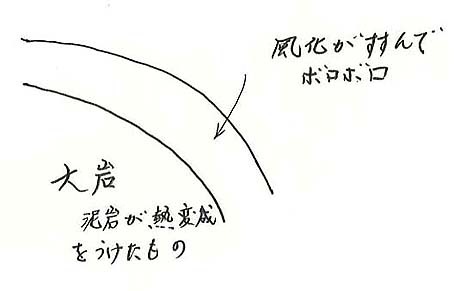 風化がすすんで
ボロボロ
大岩
泥岩が熱変成
をうけたもの